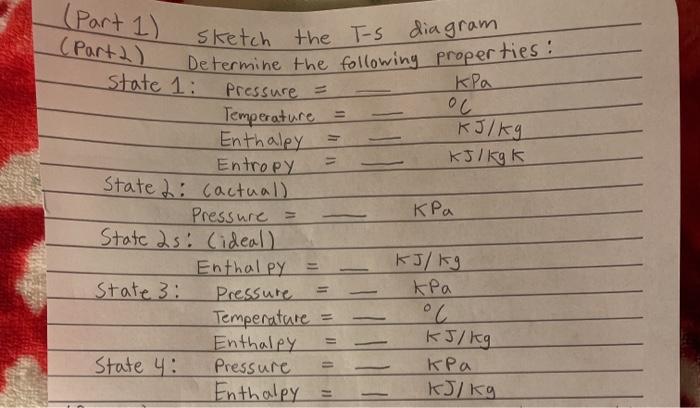 (Part 1) Sketch the T-s diagram
(Part2) Determine the following properties:
State 1: Pressure = __ KPa
Temperature = __ °C
Enthalpy = __ KJ/kg
Entropy = __ KJ/kgK
State 2: (actual)
Pressure = __ KPa
State 2s: (ideal)
Enthalpy = __ KJ/kg
State 3: Pressure = __ KPa
Temperature = __ °C
Enthalpy = __ KJ/kg
State 4: Pressure = __ KPa
Enthalpy = __ KJ/kg